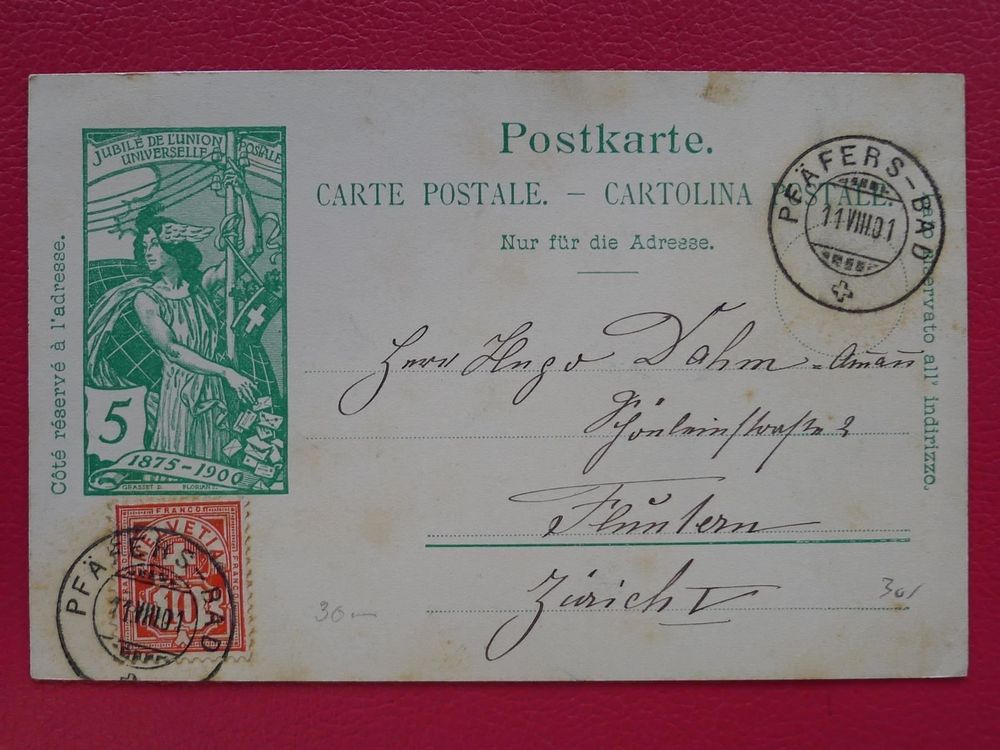 JUBILÉ DE L'UNION POSTALE
UNIVERSELLE
5
1875-1900
GRASSET D. FLORIAN
Côté réservé à l'adresse.
Postkarte.
CARTE POSTALE. – CARTOLINA POSTALE.
Nur für die Adresse.
Lato riservato all' indirizzo.
PFÄFERS-BAD
11.VIII.01
Herr Hugo Dahm-Amann
Schönleinstraße 2
Fluntern
Zürich V
FRANCO
HELVETIA
FRANCO FRANCO
10
PFÄFERS-BAD
11.VIII.01
30—